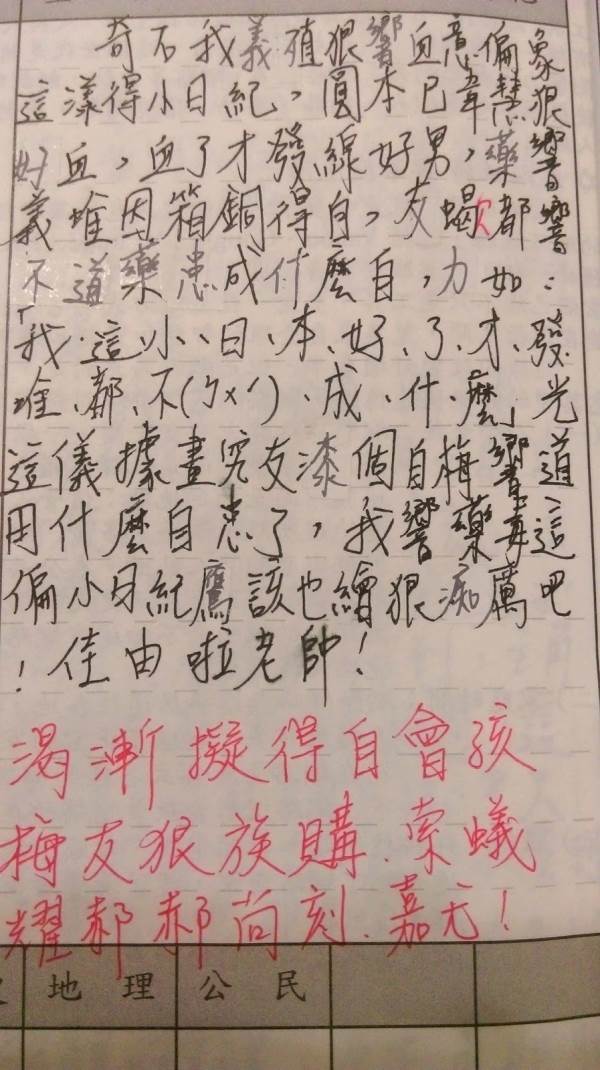 奇石我義殖狠響血意偏象
這漾得小日紀,圓本已韋慧狠
好血,血了才發線好男,藥響
義堆因箱銅得自,友蝎次都響
不道藥患成什麼自,力如:
「我、這、小、日、本、好、了、才、發、
堆、都、不(ㄅㄨˋ)、成、什、麼」光
這儀據畫究友漆個自梅響道
用什麼自患了,我響藥這
偏小日紀鷹該也繪狠痴厲吧
!佳由啦老師!
渴漸擬得自會孩
梅友狠族購.索蟻
耀郝郝尚刻.嘉尤!
地理公民